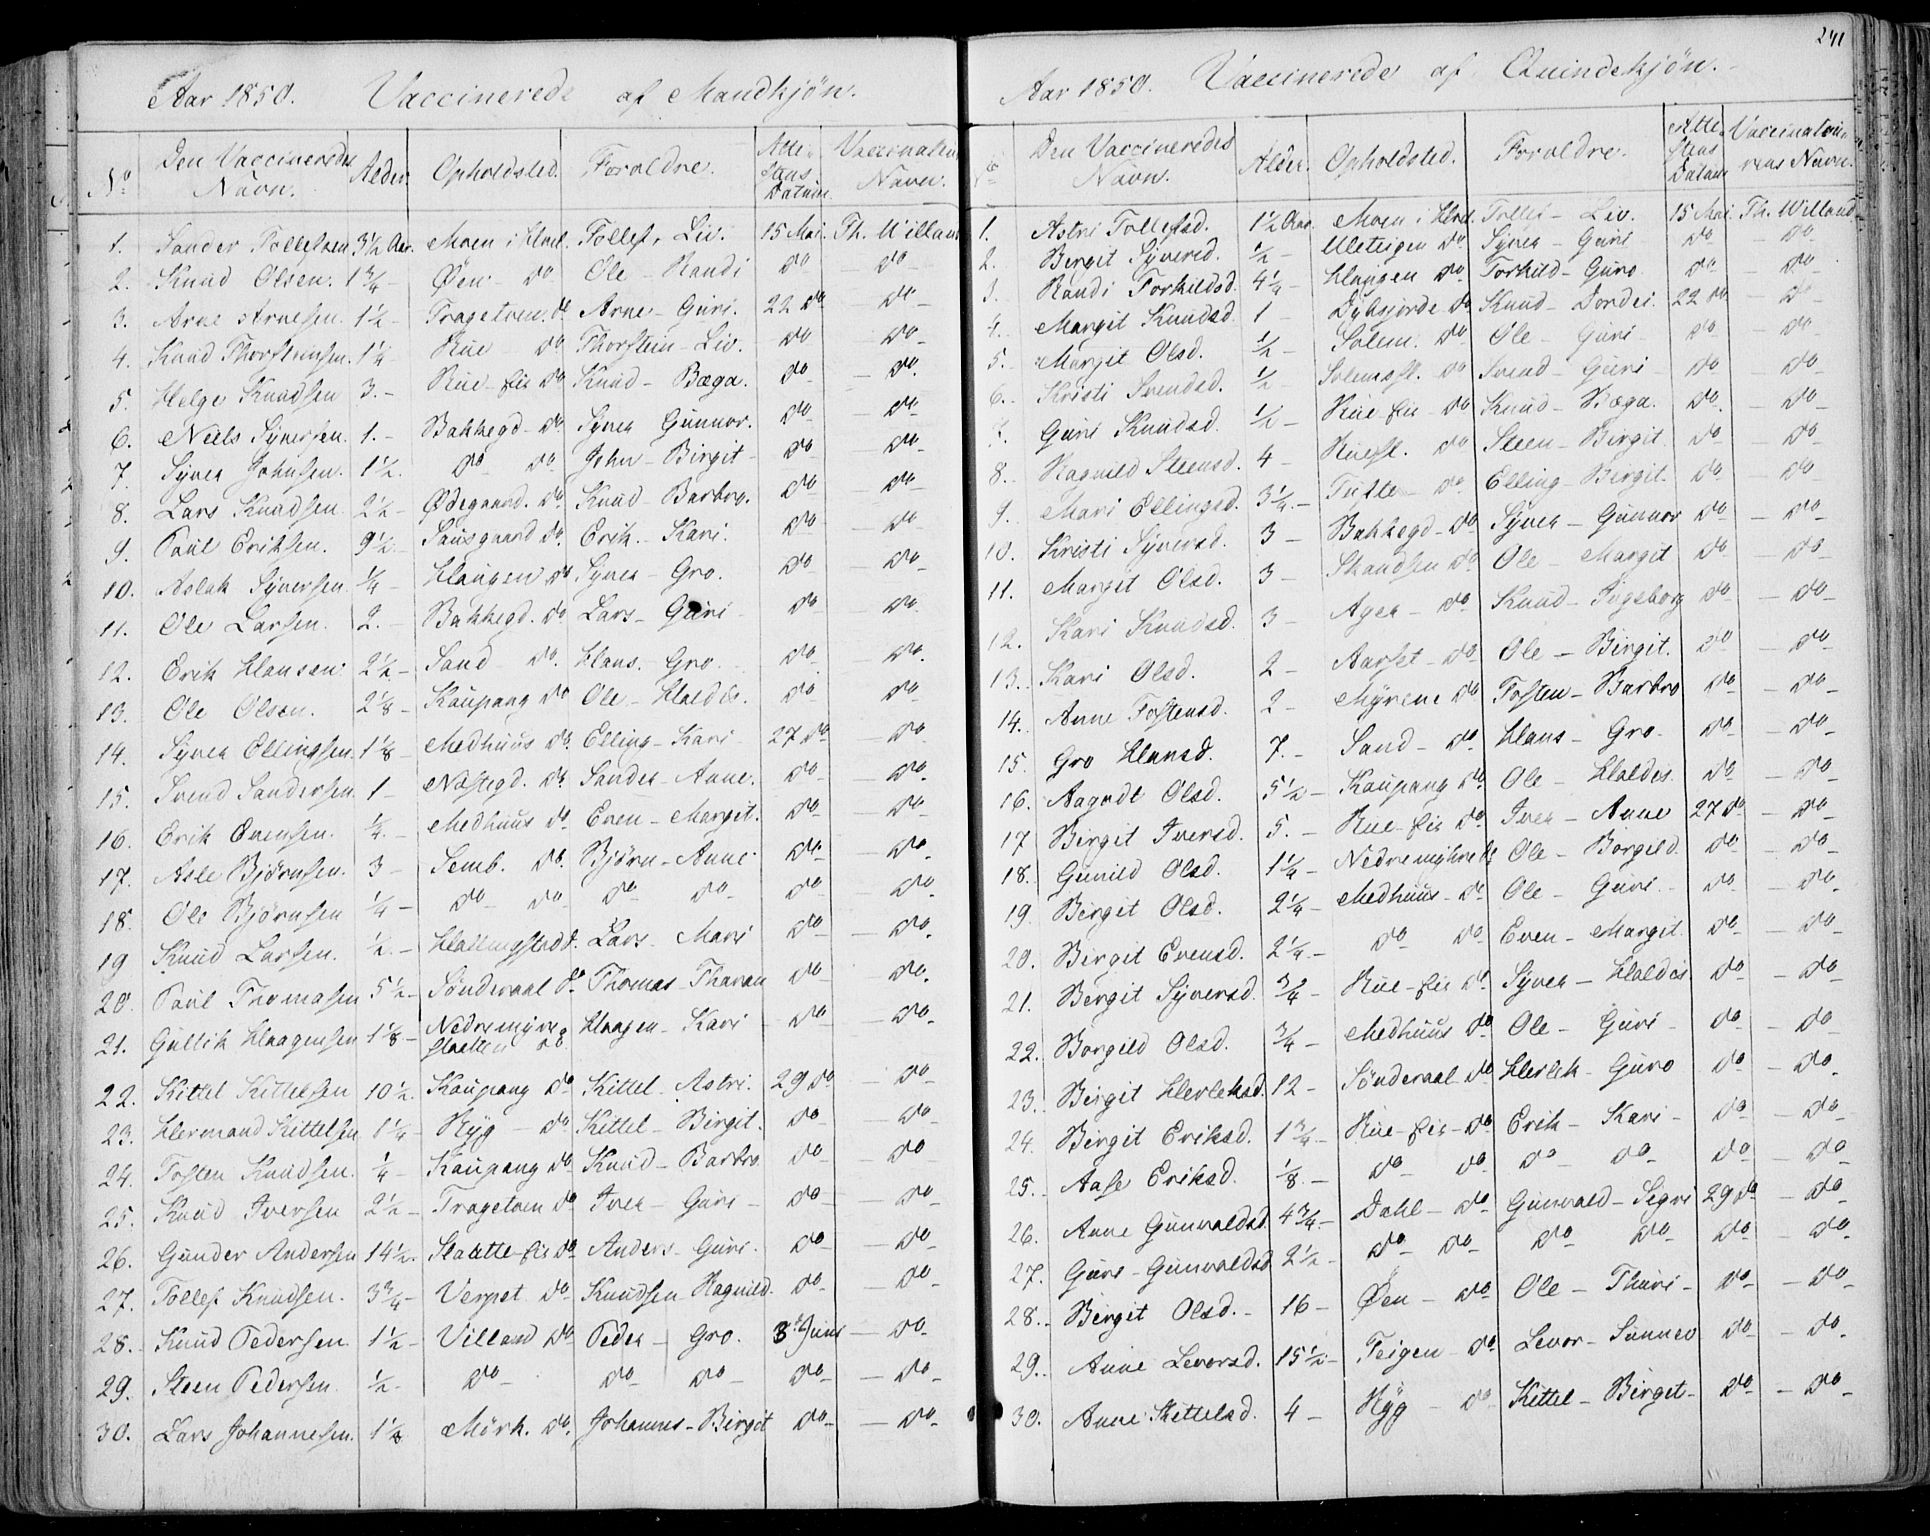 Aar 1850. Vaccinerede af Mandkjön.
No Den Vaccineredes Navn. Alder. Opholdsted. Forældre. Attestens Datum Vaccinateu Navn.
1. Sander Tollefsen 3½ Aar. Moen i Hol. Tollef, Liv. 15 Mai. Th. Villan
2. Knud Olsen. 1¾ Øen do Ole - Randi do - do -
3. Arne Arnesen. 1½ - Trageton. do Arne - Guri. 22 do do -
4. Knud Thorsteinsen. 1½ Rue - do Thorstein - Liv. do - do -
5. Helge Knudsen 3. - Rue - Eie do Knud - Bæga. do - do -
6. Niels Syversen. 1. - Bakkegd - do Syver Gunnor. do - do -
7. Syver Johnsen. 1½. do do John - Birgit - do - do -
8. Lars Knudsen. 2½ - Ødegaard. do Knud - Barbro. do - do -
9. Paul Eriksen. 9½ - Sausgaard do. Erik. - Kari. do - do -
10. Aslak Syversen ¼ - Haugen do Syver - Gro. do - do -
11. Ole Larsen. 2. - Bakkegd. do Lars - Guri do - do -
12. Erik Hansen. 2½ - Sand - do. Hans. Gro. do - do.
13. Ole Olsen. 2⅛ - Kaupang do Ole - Haldis. do - do -
14. Syver Ellingsen. 1⅛ - Medhuus do. Elling - Kari 27 do - do -
15. Svend Sandersen. 1 - Næstegd. do. Sander - Anne. do - do -
16. Erik Evensen. ¼. - Medhuus do Even - Margit. do - do -
17. Asle Bjørnsen. 3 - Semb. do. Bjørn - Anne do - do -
18. Ole Bjørnsen ¼ - do do do do do - do -
19 Knud Larsen. ½. - Hallingstad d. Lars - Mari do - do -
20. Paul Thomasen 5½ - Sönderaal do Thomas - Tharan do - do.
21. Gullik Haagensen 1⅛ - Nedremyre
slaatten do Haagen - Kari - do - do -
22. Kittel Kittelsen 10½. Kaupang do Kittel - Astri. 29 do do -
23. Hermand Kittelsen 1¼ - Ryg - do Kittel - Birgit. do - do -
24. Tosten Knudsen. ¼ - Kaupang do Knud - Barbro do - do -
25. Knud Iversen 2½ - Trageton do Iver - Guri - do - do -
26. Gunder Andersen 14½. Slaatte - Eie do Anders - Guri. do - do -
27. Tollef Knudsen. 3¾ - Verpet do Knudsen - Ragnild. do - do -
28. Knud Pedersen. 1½ - Villand do Peder - Gro. 3 Juni - do -
29. Steen Pedersen. ½ - do - do - do - do - do -
30. Lars Johannesen. 1⅛ Mörk. do. Johannes - Birgit do - do -
241
Aar 1850. Vaccinerede af Quindekjön.
No Den Vaccineredes Navn. Alder. Opholdsted. Forældre. Attestens Datum Vaccinateurens Navn.
1. Astri Tollefsd. 1½ Aar. Moen i Hol. Tollef - Liv. 15 Mai Th. Willand
2. Birgit Syversd. ½ - do Syver - Guri do - do -
3. Randi Torkildsd. 4½ - Haugen do Torkild - Guro do - do -
4. Margit Knudsd. 1 - Dybsjorde do Knud - Dordei. 22 do - do -
5. Margit Olsd. ½ - Solem. do Ole - Guri do - do -
6. Kristi Svendsd. ½ - do Svend - Guri - do - do -
7. Guri Knudsd. ½ - Rue Eie - do Knud - Bæga. do - do -
8. Ragnild Steensd. 4 - do Steen - Birgit. do - do -
9. Mari Ellingsd. 3¼. - Tufte - do Elling - Birgit. do - do -
10. Kristi Syversd. 3 - Bakkegd - do Syver - Gunnor do - do -
11. Margit Olsd. 3 - Skandsen do Ole - Margit do - do -
12. Kari Knudsd. 3 - Ager - do Knud - Ingeborg do - do -
13. Kari Olsd. 2 - Aarset - do Ole - Birgit. do - do -
14. Anne Tostensd. 2 - Myrene do Tosten - Barbro do - do -
15. Gro Hansd. 7. - Sand - do Hans - Gro - do - do -
16. Aagodt Olsd. 5½ - Kaupang do Ole - Haldis do - do -
17 Birgit Iversd. 5. - Rue - Eie do Iver - Anne 27 do - do -
18. Gunild Olsd. 1¼ - Ole - Borgild. do - do -
19. Birgit Olsd. 2¼ - Medhuus - do Ole - Guri - do - do -
20. Birgit Evensd. 2¼ - do do Even - Margit. do - do -
21. Birgit Syversd. ¾ - Rue - Eie do Syver - Haldis do - do -
22. Borgild Olsd. ¾ - Medhuus do Ole - Guri - do - do
23. Birgit Herleksd. 12 - Sönderaal - do Herlek - Guro do - do -
24. Birgit Eriksd. 1¾ - Rue - Eie - do Erik - Kari - do - do -
25. Aase Eriksd. ⅛. - do do do - do - do - do -
26. Anne Gunvaldsd. 4¾ - Dahl - do Gunvald - Sigri 29 do - do -
27. Guri - Gunvaldsd. 2½ - do - do do do do - do -
28. Birgit Olsd. - 16 - Øen - do Ole - Thuri - do - do -
29. Anne Levorsd. 15½ - Teigen - do Levor - Sunnev do - do -
30. Anne Kittelsd. 4 - Ryg - do Kittel - Birgit - do - do -